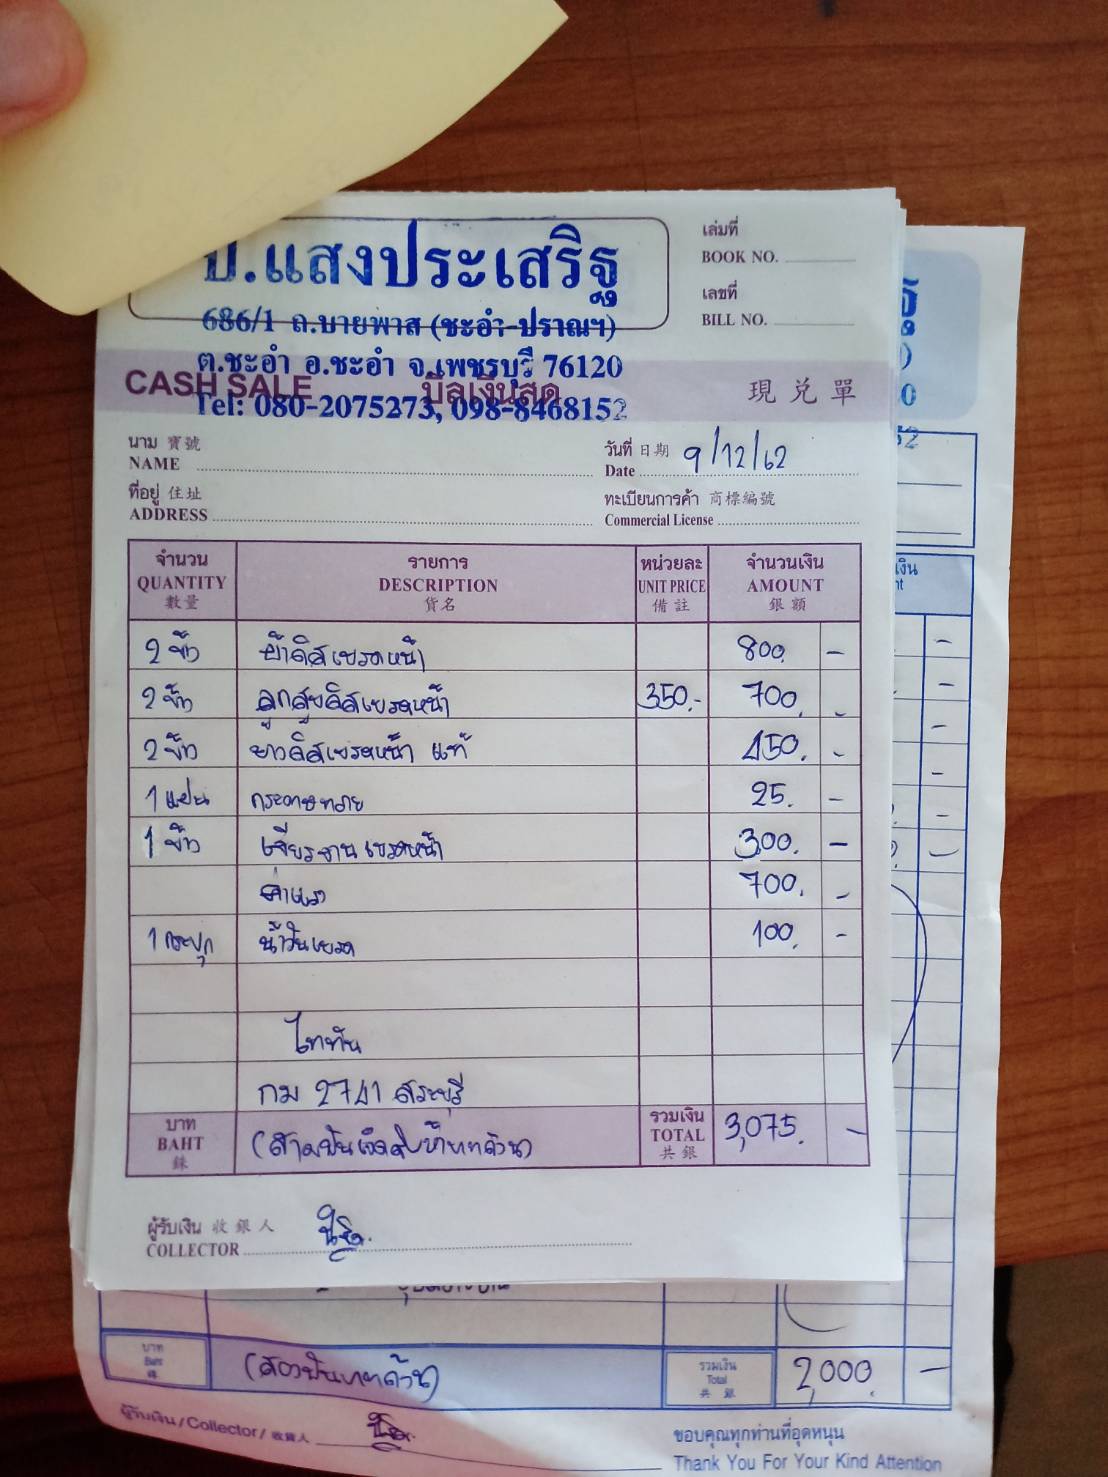 ป.แสงประเสริฐ
686/1 ถ.บายพาส (ชะอำ-ปราณฯ)
ต.ชะอำ อ.ชะอำ จ.เพชรบุรี 76120
Tel: 080-2075273, 098-8468152
เล่มที่
BOOK NO.
เลขที่
BILL NO.
CASH SALE บิลเงินสด 現兌單
นาม 寶號
NAME
วันที่ 日期
Date 9/12/62
ที่อยู่ 住址
ADDRESS
ทะเบียนการค้า 商標編號
Commercial License
จำนวน รายการ หน่วยละ จำนวนเงิน
QUANTITY DESCRIPTION UNIT PRICE AMOUNT
數量 貨名 備註 銀額
2 ชิ้น ผ้าดิสเบรคหน้า 800. -
2 ชิ้น ลูกสูบดิสเบรคหน้า 350.- 700. -
2 ชิ้น ยางดิสเบรคหน้า แท้ 450. -
1 แผ่น กระดาษทราย 25. -
1 ชิ้น เจียรจานเบรคหน้า 300. -
ค่าแรง 700. -
1 กระปุก น้ำมันเบรค 100. -
ไททัน
กม 2741 สระบุรี
บาท
BAHT (สามพันเจ็ดสิบห้าบาทถ้วน)
รวมเงิน
TOTAL 3,075. -
共銀
ผู้รับเงิน 收銀人
COLLECTOR
บาท
Baht
(สองพันบาทถ้วน)
รวมเงิน
Total
共銀
2,000. -
ผู้รับเงิน/Collector/收銀人
ขอบคุณทุกท่านที่อุดหนุน
Thank You For Your Kind Attention